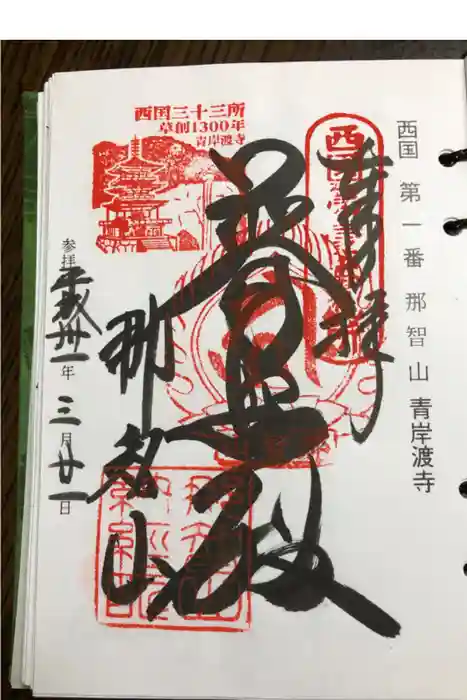 西国 第一番 那智山 青岸渡寺
奉拝
西国第一番
普照殿
那智山
西国三十三所
草創1300年
青岸渡寺
参拝 平成卅一年 三月廿一日